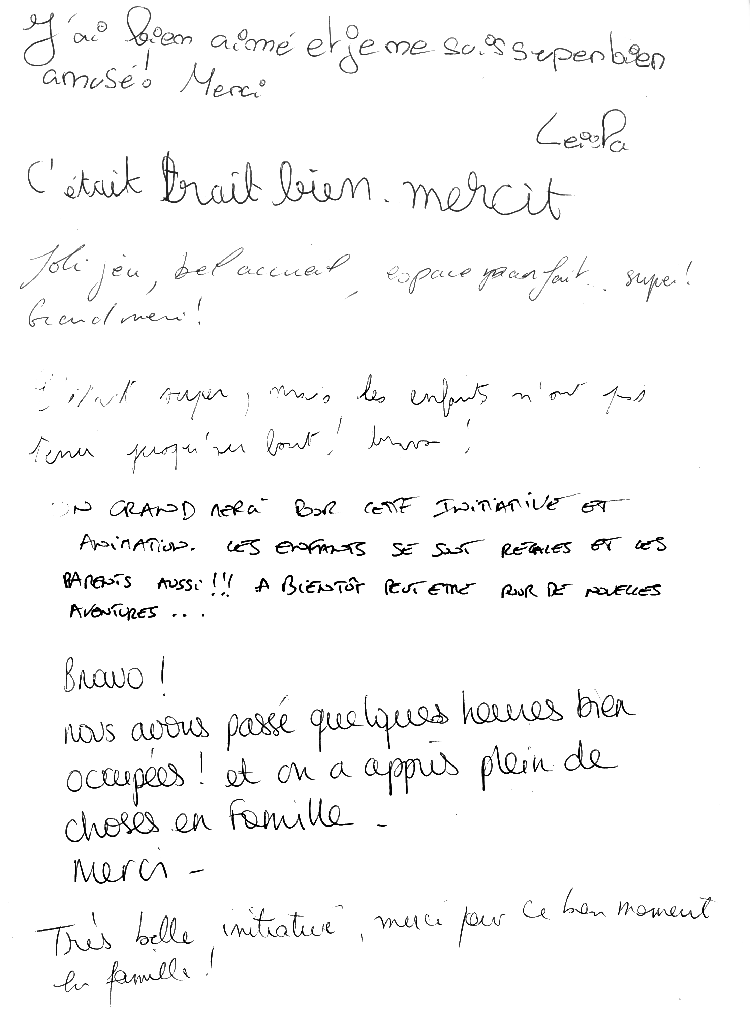 J'ai bien aimé et je me suis super bien
amusé! Merci
Leïla
C'était trait bien. mercit
Joli jeu, bel accueil, espace parfait.. super!
Grand merci!
C'était super, mais les enfants n'ont pas
tenu jusqu'au bout! bravo!
UN GRAND MERCI POUR CETTE INITIATIVE ET
ANIMATION. LES ENFANTS SE SONT REGALES ET LES
PARENTS AUSSI!!! A BIENTÔT PEUT ETRE POUR DE NOUVELLES
AVENTURES...
Bravo!
nous avons passé quelques heures bien
occupées! et on a appris plein de
choses en famille -
Merci -
Très belle initiative, merci pour ce bon moment
en famille!